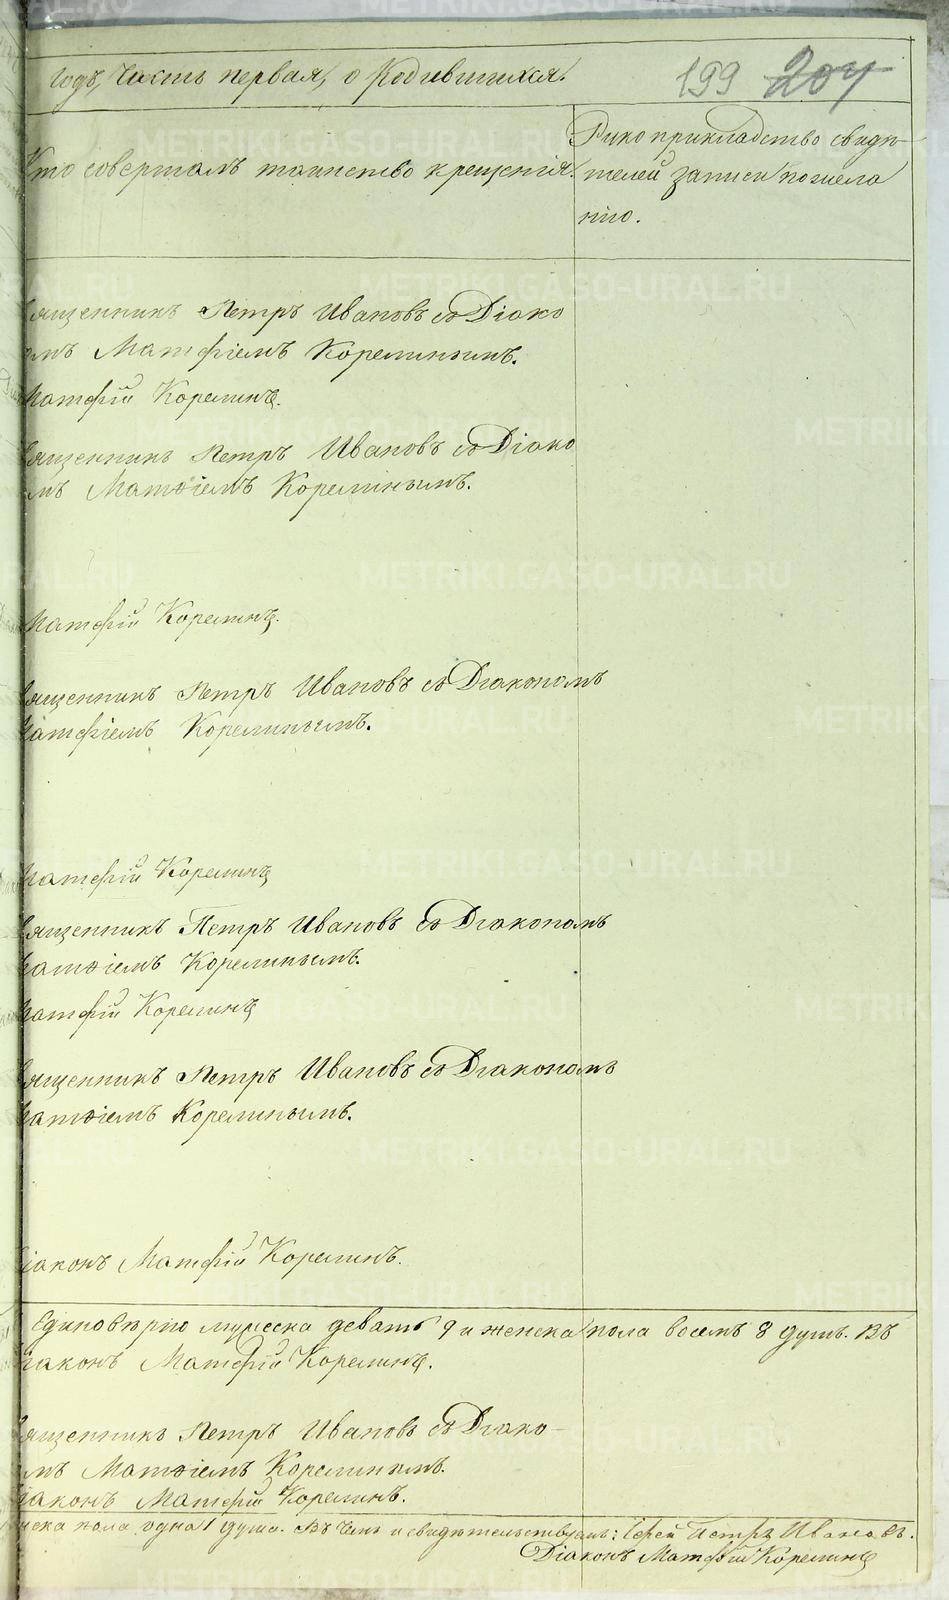 годъ, Часть первая, о Родившихся.
199 204
Кто совершалъ таинство крещенія.
Рукоприкладство свидѣ-
телей записи по жела
нію.
Священникъ Петръ Ивановъ съ Діако
омъ Матфіемъ Корелинымъ.
Матфій Корелинъ.
Священникъ Петръ Ивановъ съ Діако
мъ Матѳіемъ Корелинымъ.
Матфій Корелинъ.
Священникъ Петръ Ивановъ съ Діакономъ
Матфіемъ Корелинымъ.
Матфій Корелинъ
Священникъ Петръ Ивановъ съ Діакономъ
Матѳіемъ Корелинымъ.
Матфій Корелинъ
Священникъ Петръ Ивановъ съ Діакономъ
Матѳіемъ Корелинымъ.
Діаконъ Матфій Корелинъ.
Единовѣрію мужеска девать 9 и женска пола восемъ 8 душъ. Въ
Діаконъ Матфій Корелинъ.
Священникъ Петръ Ивановъ съ Діако-
мъ Матѳіемъ Корелинымъ.
Діаконъ Матфій Корелинъ.
нска пола одна 1 душа. Въ чемъ и свидѣтельствуемъ: Іерей Петръ Ивановъ.
Діаконъ Матфій Корелинъ
METRIKI.GASO-URAL.RU